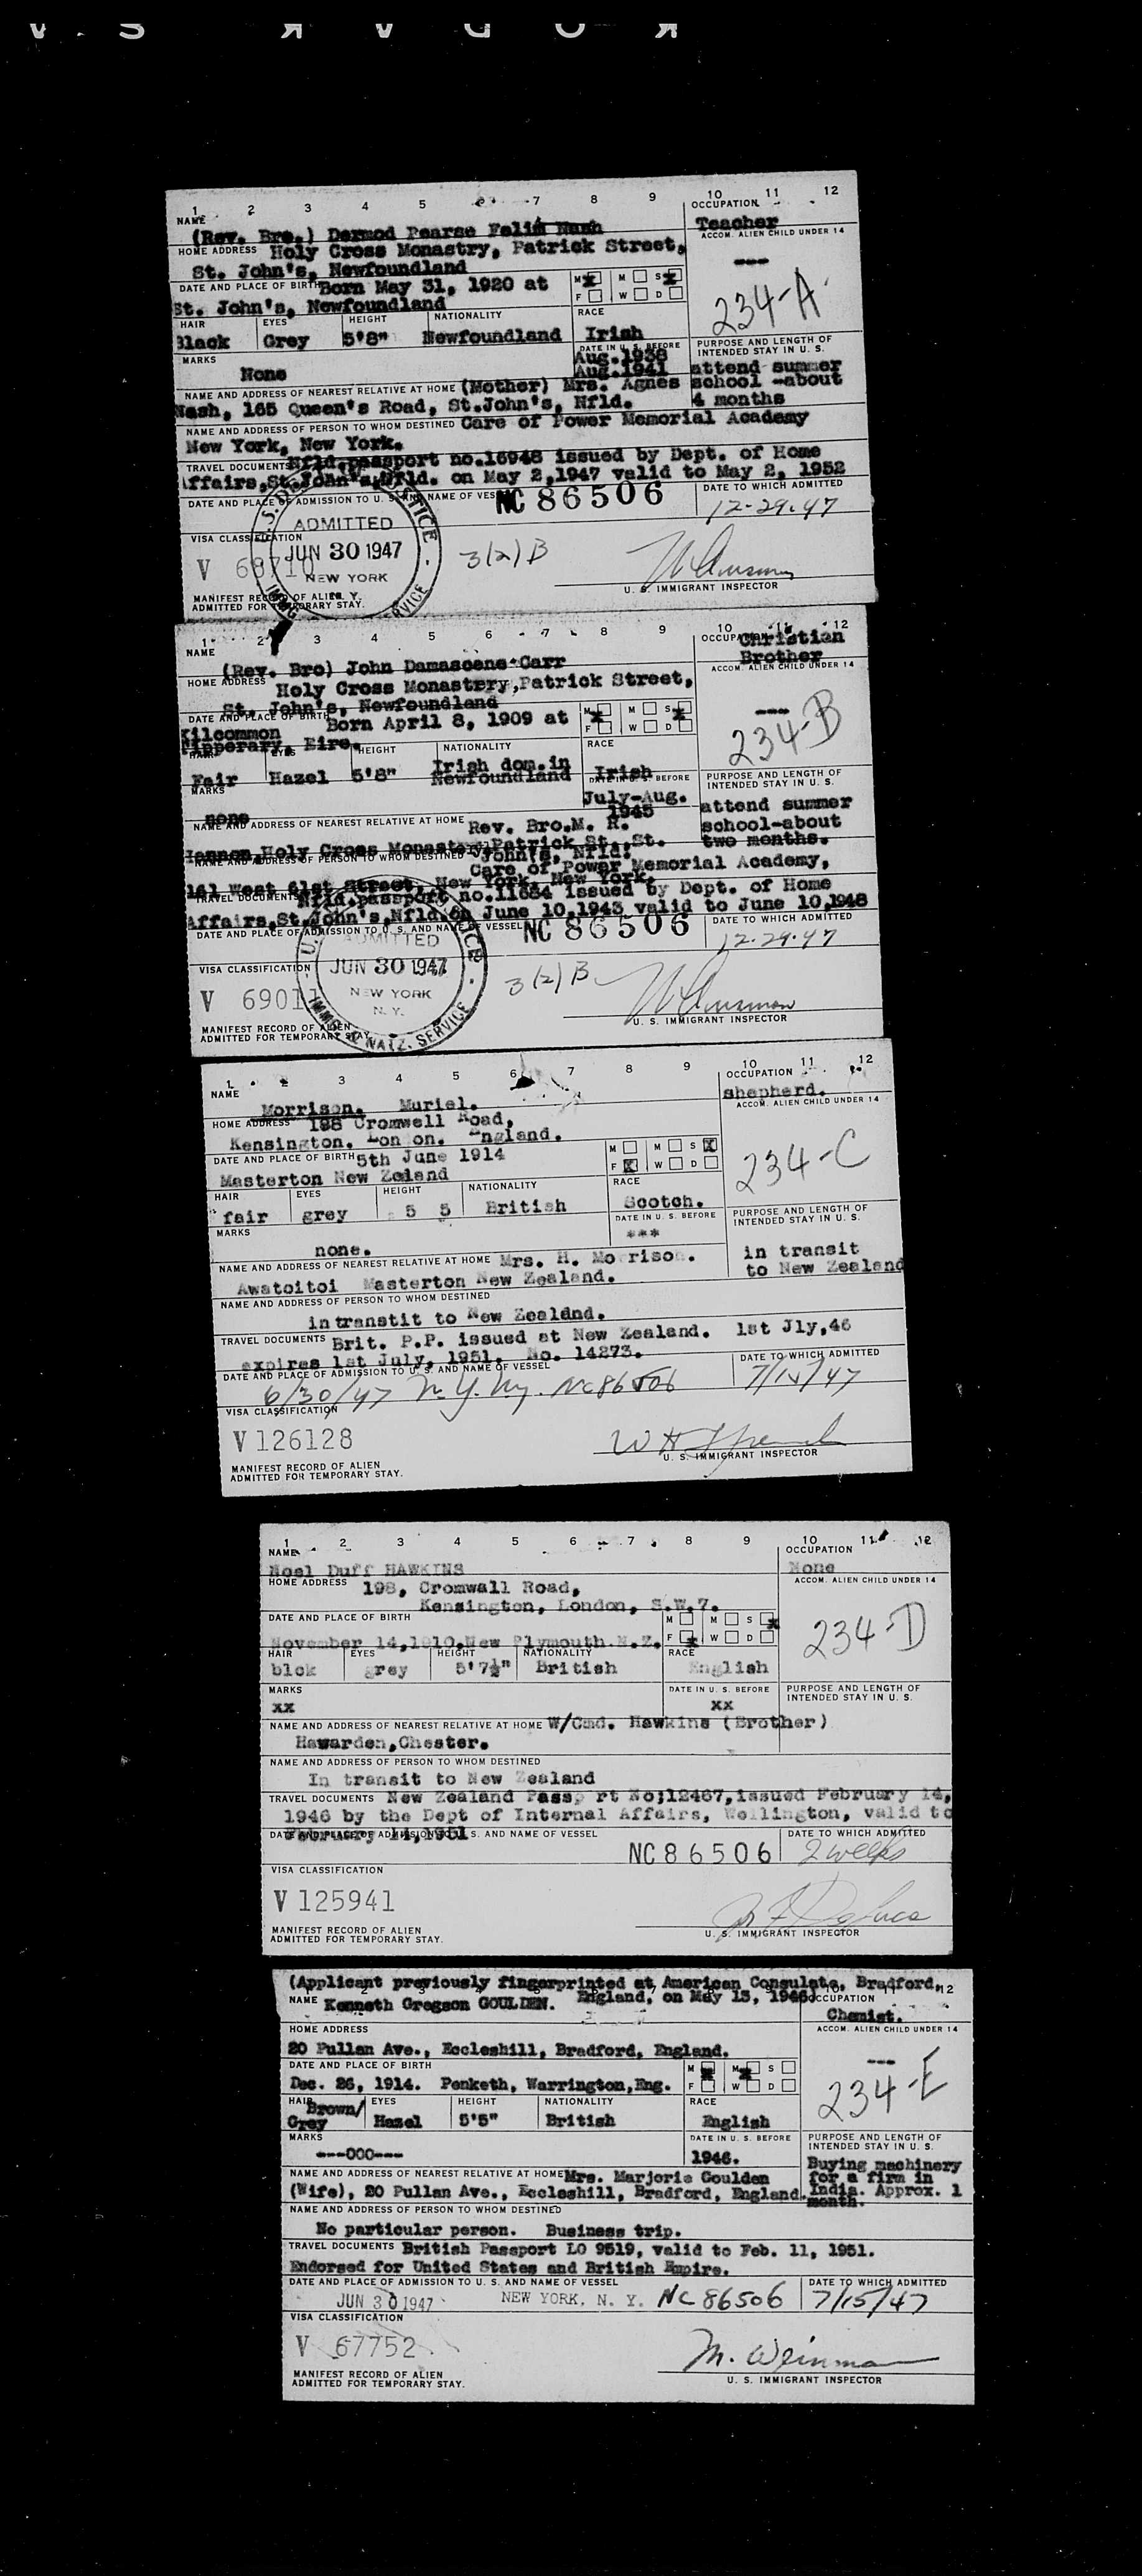 KODAK S A
1 2 3 4 5 6 7 8 9 10 11 12
NAME OCCUPATION
(Rev. Bro.) Dermod Pearse Felim Nash Teacher
HOME ADDRESS Holy Cross Monastry, Patrick Street, ACCOM. ALIEN CHILD UNDER 14
St. John's, Newfoundland ---
DATE AND PLACE OF BIRTH Born May 31, 1920 at M x M S x
St. John's, Newfoundland F W D 234-A
HAIR EYES HEIGHT NATIONALITY RACE
Black Grey 5'8" Newfoundland Irish
MARKS DATE IN U. S. BEFORE PURPOSE AND LENGTH OF INTENDED STAY IN U. S.
None Aug.1938 Aug.1941 attend summer
NAME AND ADDRESS OF NEAREST RELATIVE AT HOME (Mother) Mrs. Agnes school -about
Nash, 165 Queen's Road, St.John's, Nfld. 4 months
NAME AND ADDRESS OF PERSON TO WHOM DESTINED Care of Power Memorial Academy
New York, New York.
TRAVEL DOCUMENTS Nfld.passport no.16948 issued by Dept. of Home
Affairs,St.John's,Nfld. on May 2,1947 valid to May 2, 1952
DATE AND PLACE OF ADMISSION TO U. S. AND NAME OF VESSEL NC 86506 DATE TO WHICH ADMITTED
12-29-47
ADMITTED
VISA CLASSIFICATION JUN 30 1947 3(2)B
V 68710 NEW YORK
N. Y.
U. S. IMMIGRANT INSPECTOR
MANIFEST RECORD OF ALIEN
ADMITTED FOR TEMPORARY STAY.
1 2 3 4 5 6 7 8 9 10 11 12
NAME OCCUPATION Christian
(Rev. Bro) John Damascene Carr Brother
HOME ADDRESS Holy Cross Monastrry,Patrick Street, ACCOM. ALIEN CHILD UNDER 14
St. John's, Newfoundland ---
DATE AND PLACE OF BIRTH Born April 8, 1909 at M x M S x
Kilcommon F W D 234-B
Tipperary, Eire.
HAIR EYES HEIGHT NATIONALITY RACE
Fair Hazel 5'8" Irish dom.in Newfoundland Irish
MARKS DATE IN U. S. BEFORE PURPOSE AND LENGTH OF INTENDED STAY IN U. S.
none July-Aug. 1945 attend summer
NAME AND ADDRESS OF NEAREST RELATIVE AT HOME Rev. Bro.M. R. school-about
Hannon Holy Cross Monastery Patrick St.,St. John's, Nfld. two months.
NAME AND ADDRESS OF PERSON TO WHOM DESTINED Care of Power Memorial Academy,
161 West 61st Street, New York, New York.
TRAVEL DOCUMENTS Nfld.passport no.11634 issued by Dept. of Home
Affairs,St.John's,Nfld.on June 10,1943 valid to June 10,1948
DATE AND PLACE OF ADMISSION TO U. S. AND NAME OF VESSEL NC 86506 DATE TO WHICH ADMITTED
12-29-47
ADMITTED
VISA CLASSIFICATION JUN 30 1947 3(2)B
V 69011 NEW YORK
N. Y.
U. S. IMMIGRANT INSPECTOR
IMMIG. & NATZ. SERVICE
MANIFEST RECORD OF ALIEN
ADMITTED FOR TEMPORARY STAY.
1 2 3 4 5 6 7 8 9 10 11 12
NAME OCCUPATION
Morrison. Muriel. shepherd.
HOME ADDRESS 198 Cromwell Road, ACCOM. ALIEN CHILD UNDER 14
Kensington. Lon on. England.
DATE AND PLACE OF BIRTH 5th June 1914 M M S x
Masterton New Zealand F x W D 234-C
HAIR EYES HEIGHT NATIONALITY RACE
fair grey 5 5 British Scotch.
MARKS DATE IN U. S. BEFORE PURPOSE AND LENGTH OF INTENDED STAY IN U. S.
none. ***
NAME AND ADDRESS OF NEAREST RELATIVE AT HOME Mrs. H. Morrison. in transit
Awatoitoi Masterton New Zealand. to New Zealand
NAME AND ADDRESS OF PERSON TO WHOM DESTINED
in transtit to New Zealand.
TRAVEL DOCUMENTS Brit. P.P. issued at New Zealand. 1st Jly,46
expires 1st July, 1951. No. 14273.
DATE AND PLACE OF ADMISSION TO U. S. AND NAME OF VESSEL DATE TO WHICH ADMITTED
6/30/47 N.Y. Ny. NC86506 7/15/47
VISA CLASSIFICATION
V 126128
U. S. IMMIGRANT INSPECTOR
MANIFEST RECORD OF ALIEN
ADMITTED FOR TEMPORARY STAY.
1 2 3 4 5 6 7 8 9 10 11 12
NAME OCCUPATION
Noel Duff HAWKINS None
HOME ADDRESS 198, Cromwall Road, ACCOM. ALIEN CHILD UNDER 14
Kensington, London, S.W.7.
DATE AND PLACE OF BIRTH M M S x
November 14,1910,New Plymouth.N.Z. F x W D 234-D
HAIR EYES HEIGHT NATIONALITY RACE
blck grey 5'7½" British English
MARKS DATE IN U. S. BEFORE PURPOSE AND LENGTH OF INTENDED STAY IN U. S.
xx xx
NAME AND ADDRESS OF NEAREST RELATIVE AT HOME W/Cmd. Hawkins (Brother)
Hawarden,Chester.
NAME AND ADDRESS OF PERSON TO WHOM DESTINED
In transit to New Zealand
TRAVEL DOCUMENTS New Zealand Passp rt No;12467,issued February 14,
1946 by the Dept of Internal Affairs, Wellington, valid to
February 14,1951
DATE AND PLACE OF ADMISSION TO U. S. AND NAME OF VESSEL DATE TO WHICH ADMITTED
NC86506 2 weeks
VISA CLASSIFICATION
V 125941
U. S. IMMIGRANT INSPECTOR
MANIFEST RECORD OF ALIEN
ADMITTED FOR TEMPORARY STAY.
(Applicant previously fingerprinted at American Consulate, Bradford,
England, on May 13, 1946)
NAME Kenneth Gregson GOULDEN. OCCUPATION
Chemist.
HOME ADDRESS ACCOM. ALIEN CHILD UNDER 14
20 Pullan Ave., Eccleshill, Bradford, England. ---
DATE AND PLACE OF BIRTH M x M x S
Dec. 26, 1914. Penketh, Warrington,Eng. F W D 234-E
HAIR EYES HEIGHT NATIONALITY RACE
Brown/Grey Hazel 5'5" British English
MARKS DATE IN U. S. BEFORE PURPOSE AND LENGTH OF INTENDED STAY IN U. S.
---000--- 1946. Buying machinery
NAME AND ADDRESS OF NEAREST RELATIVE AT HOME Mrs. Marjorie Goulden for a firm in
(Wife), 20 Pullan Ave., Eccleshill, Bradford, England. India. Approx. 1 month.
NAME AND ADDRESS OF PERSON TO WHOM DESTINED
No particular person. Business trip.
TRAVEL DOCUMENTS British Passport LO 9519, valid to Feb. 11, 1951.
Endorsed for United States and British Empire.
DATE AND PLACE OF ADMISSION TO U. S. AND NAME OF VESSEL DATE TO WHICH ADMITTED
JUN 30 1947 NEW YORK, N. Y. NC86506 7/15/47
VISA CLASSIFICATION
V 67752 M. Weinman
U. S. IMMIGRANT INSPECTOR
MANIFEST RECORD OF ALIEN
ADMITTED FOR TEMPORARY STAY.